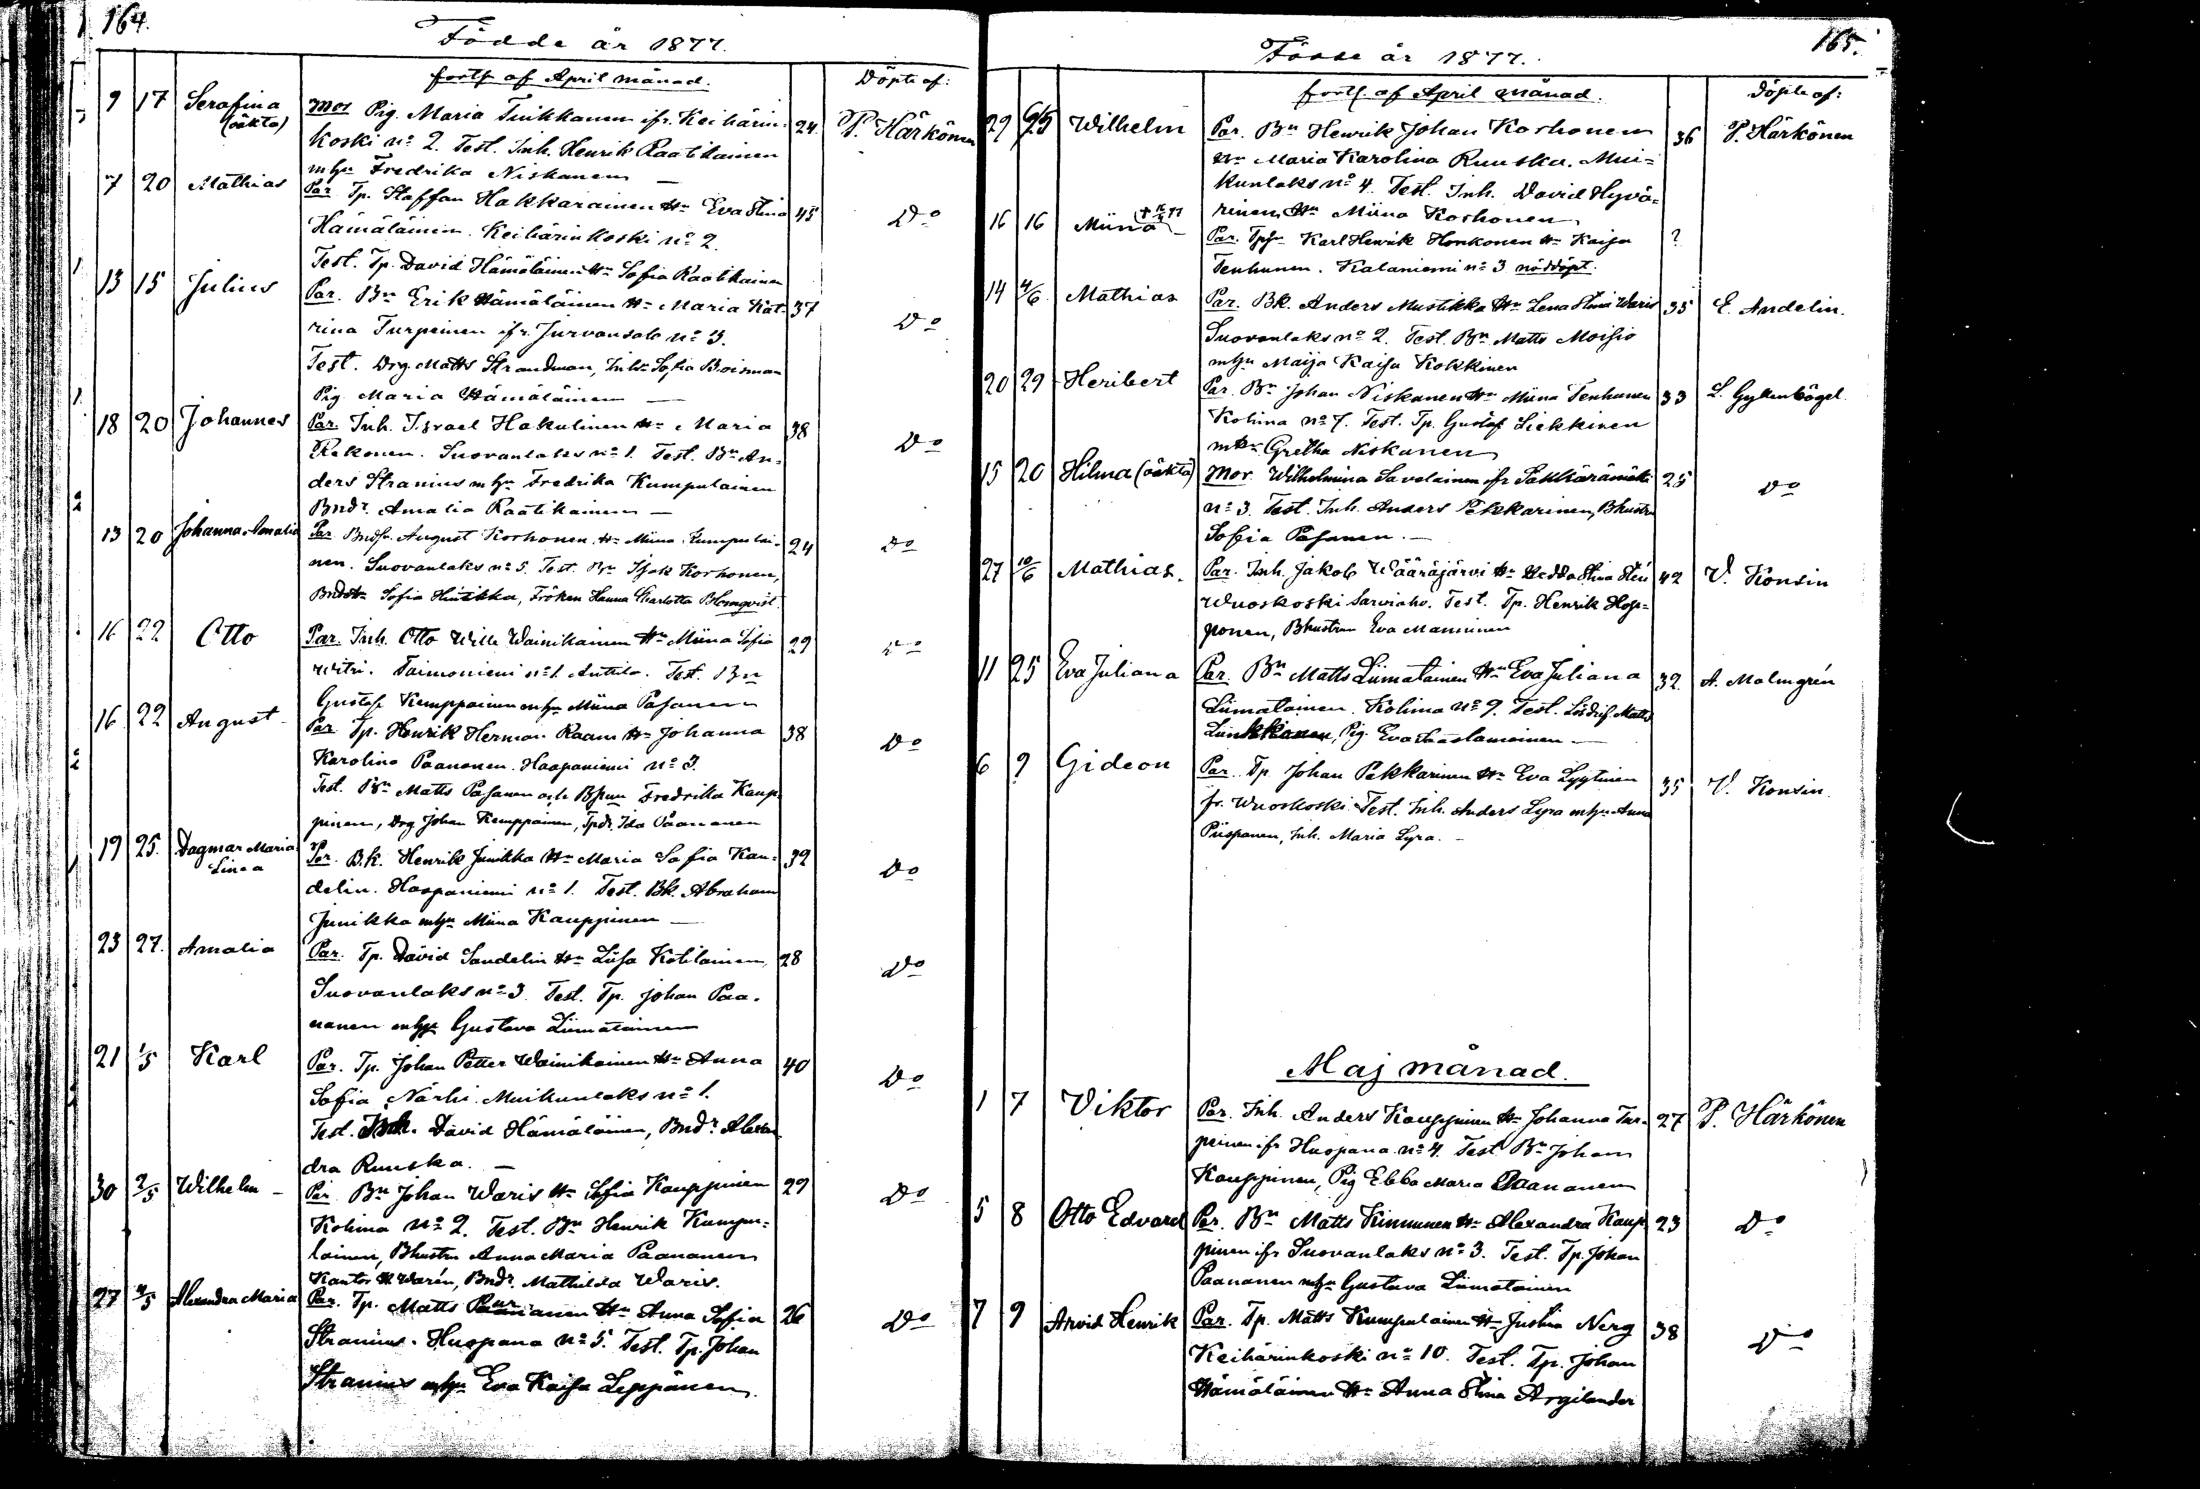 164.
Födde år 1877.
forts. af April månad.
Döpte af:
9 17 Serafina Mor Pig. Maria Tinkkanen ifr. Keihärin- 24 P. Härkönen
(oäkta) koski No 2. Test. Inh. Henrik Raatikainen
mhu Fredrika Niskanen —
7 20 Mathias Par. Tp. Staffan Hakkarainen Hu Eva Stina 45 Do
Hämäläinen. Keihärinkoski No 2.
Test. Tp. David Hämäläinen Hu Sofia Raatikainen
13 15 Julius Par. Bn Erik Hämäläinen Hu Maria Kat- 37 Do
rina Turpeinen ifr. Jurvansalo No 3.
Test. Drg. Matts Strandman, Inhu Sofia Boisman
Pig Maria Hämäläinen —
18 20 Johannes Par. Inh. Israel Hakulinen Hu Maria 38 Do
Rekonen. Suovanlaks No 1. Test. Bn An-
ders Stranius mhu Fredrika Kumpulainen
Bndr. Amalia Raatikainen —
13 20 Johanna Amalia Par Bndsr. August Korhonen Hu Miina Kumpulai- 24 Do
nen. Suovanlaks No 5. Test. Bn Isak Korhonen,
Sofia Hintikka, Fröken Hanna Charlotta Blomqvist.
16 22 Otto Par. Inh. Otto Wille Wainikainen Hu Miina Sofia 29 Do
Witri. Taimoniemi No 1. Anttila. Test. Bn
Gustaf Kemppainen mhu Miina Pasanen
16 22 August Par. Tp. Henrik Herman Raam Hu Johanna 38 Do
Karolina Paananen. Haapaniemi No 3.
Test. Bn Matts Pasanen och Fredrika Kaup-
pinen, Drg Johan Kemppainen, Tpdr. Ida Paananen
19 25. Dagmar Maria Par. B.k. Henrik Junikka Hu Maria Sofia Kan- 32 Do
Linea delin. Haapaniemi No 1. Test. Bk. Abraham
Junikka mhu Miina Kauppinen —
23 27. Amalia Par. Tp. David Sandelin Hu Liisa Kotilainen, 28 Do
Suovanlaks No 3. Test. Tp. Johan Paa-
nanen mhu Gustava Liimatainen
21 1/5 Karl Par. Tp. Johan Petter Wainikainen Hu Anna 40 Do
Sofia Närhi. Muikunlaks No 1.
Test. Inh. David Hämäläinen, Bndr Alexan-
dra Ruuska. —
30 2/5 Wilhelm Par. Bn Johan Waris Hu Sofia Kauppinen 29 Do
Kolima No 2. Test. Bn Henrik Kumpu-
lainen, Bhustru Anna Maria Paananen
Kantor Warén, Bndr. Mathilda Waris.
27 /5 Alexandra Maria Par. Tp. Matts Paananen Hu Anna Sofia 26 Do
Stranius. Huopana No 5. Test. Tp. Johan
Stranius mhu Eva Kaisa Leppänen.
165.
Födde år 1877.
forts. af April månad.
Döpte af:
29 9/5 Wilhelm Par. Bn Henrik Johan Korhonen 36 P. Härkönen
Hu Maria Karolina Ruuska. Mui-
kunlaks No 4. Test. Inh. David Hyvä-
rinen, Hu Miina Korhonen
16 16 Miina Par. Karl Henrik Honkonen Hu Kaisa ?
Tenhunen. Kalaniemi No 3 nöddöpt.
14 4/6 Mathias Par. Bk. Anders Mustikka Hu Lena Stina Waris 35 E. Andelin.
Suovanlaks No 2. Test. Bn Matts Moisio
mhu Maija Kaisa Kokkinen
20 29 Heribert Par. Bn Johan Niskanen Hu Miina Tenhunen 33 L. Gyllenbögel
Kolima No 7. Test. Tp. Gustaf Liekkinen
mhu Gretha Niskanen
15 20 Hilma (oäkta) Mor Wilhelmina Savolainen ifr 25 Do
No 3. Test. Inh. Anders Pekkarinen, Bhustru
Sofia Pasanen. —
27 10/6 Mathias. Par. Inh. Jakob Wääräjärvi Hu Hedda Stina 42 V. Konsin
Wuoskoski Sarviaho. Test. Tp. Henrik Hop-
ponen, Bhustrun Eva Manninen
11 25 Eva Juliana Par. Bn Matts Liimatainen Hu Eva Juliana 32 A. Malmgrén
Liimatainen. Kolima No 9. Test. Matts
Pig. Eva —
6 9 Gideon Par. Tp. Johan Pekkarinen Hu Eva Lyytinen 35 V. Konsin
fr. Wuoskoski. Test. Inh. Anders Lyra mhu Anna
Piispanen, Inh. Maria Lyra. —
Maj månad.
1 7 Viktor Par. Inh. Anders Kauppinen Hu Johanna Tur- 27 P. Härkönen
peinen ifr Huopana No 4. Test Bn Johan
Kauppinen, Pig Ebba Maria Paananen
5 8 Otto Edvard Par. Bn Matts Kinnunen Hu Alexandra Kaup- 23 Do
pinen ifr Suovanlaks No 3. Test. Tp. Johan
Paananen mhu Gustava Liimatainen
7 9 Arvid Henrik Par. Tp. Matts Kumpulainen Hu Justina Nerg 38 Do
Keihärinkoski No 10. Test. Tp. Johan
Hämäläinen Hu Anna Stina Argilander